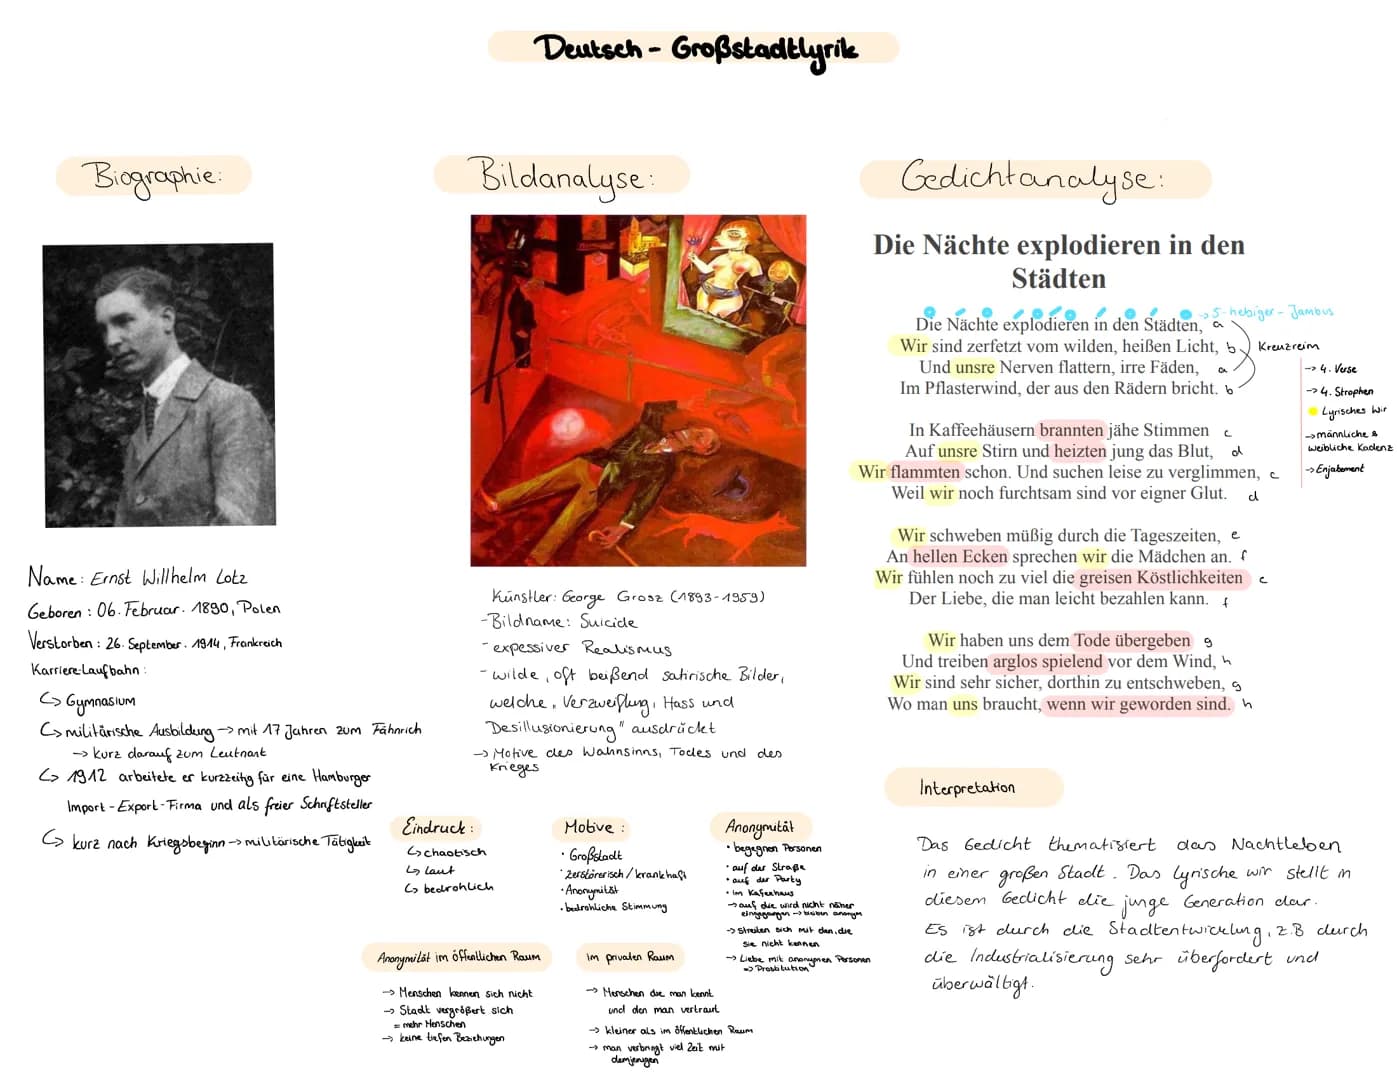 Deutsch - Großstadtlyrik
Biographie:
Name: Ernst Willhelm Lotz
Geboren: 06. Februar. 1890, Polen
Verstorben: 26. September. 1914, Frankreich
Karriere-Laufbahn:
↳ Gymnasium
↳ militärische Ausbildung → mit 17 Jahren zum Fähnrich
→ kurz darauf zum Leutnant
↳ 1912 arbeitete er kurzzeitig für eine Hamburger
Import-Export-Firma und als freier Schriftsteller
↳ kurz nach Kriegsbeginn → militärische Tätigkeit
Bildanalyse:
Künstler: George Grosz (1893-1959)
-Bildname: Suicide
-expessiver Realismus
-wilde, oft beißend satirische Bilder,
welche „Verzweiflung, Hass und
Desillusionierung" ausdrückt
→ Motive des Wahnsinns, Todes und des
Krieges
Eindruck:
↳ chaotisch
↳ laut
↳ bedrohlich
Motive:
· Großstadt
· zerstörerisch / krankhaft
· Anonymität
· bedrohliche Stimmung
Anonymität
• begegnen Personen
• auf der Straße
• auf der Party
• im Kafeehaus
→ auf die wird nicht näher
eingegangen → bleiben anonym
→ streiten sich mit den, die
sie nicht kennen
→ Liebe mit anonymen Personen
=> Prostitution
Anonymität im öffentlichen Raum
→ Menschen kennen sich nicht
→ Stadt vergrößert sich
= mehr Menschen
→ keine tiefen Beziehungen
Im privaten Raum
→ Menschen die man kennt
und den man vertraut
→ kleiner als im öffentlichen Raum
→ man verbringt viel Zeit mit
demjenigen
Gedichtanalyse:
Die Nächte explodieren in den
Städten
→ 5-hebiger-Jambus
Die Nächte explodieren in den Städten, a
Wir sind zerfetzt vom wilden, heißen Licht, b
Und unsre Nerven flattern, irre Fäden, a
Im Pflasterwind, der aus den Rädern bricht. b
Kreuzreim
In Kaffeehäusern brannten jähe Stimmen c
Auf unsre Stirn und heizten jung das Blut, d
Wir flammten schon. Und suchen leise zu verglimmen, c
Weil wir noch furchtsam sind vor eigner Glut. d
Wir schweben müßig durch die Tageszeiten, e
An hellen Ecken sprechen wir die Mädchen an. f
Wir fühlen noch zu viel die greisen Köstlichkeiten e
Der Liebe, die man leicht bezahlen kann. f
Wir haben uns dem Tode übergeben g
Und treiben arglos spielend vor dem Wind, h
Wir sind sehr sicher, dorthin zu entschweben, g
Wo man uns braucht, wenn wir geworden sind. h
→ 4. Verse
→ 4. Strophen
Lyrisches Wir
→ männliche &
weibliche Kadenz
→ Enjabement
Interpretation
Das Gedicht thematisiert das Nachtleben
in einer großen Stadt. Das lyrische wir stellt in
diesem Gedicht die junge Generation dar.
Es ist durch die Stadtentwicklung, z.B durch
die Industrialisierung sehr überfordert und
überwältigt.